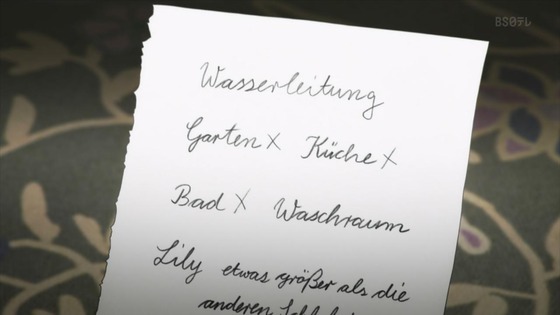 BS日テレ
Wasserleitung
Garten X Küche X
Bad X Waschraum
Lily etwas größer als die
anderen